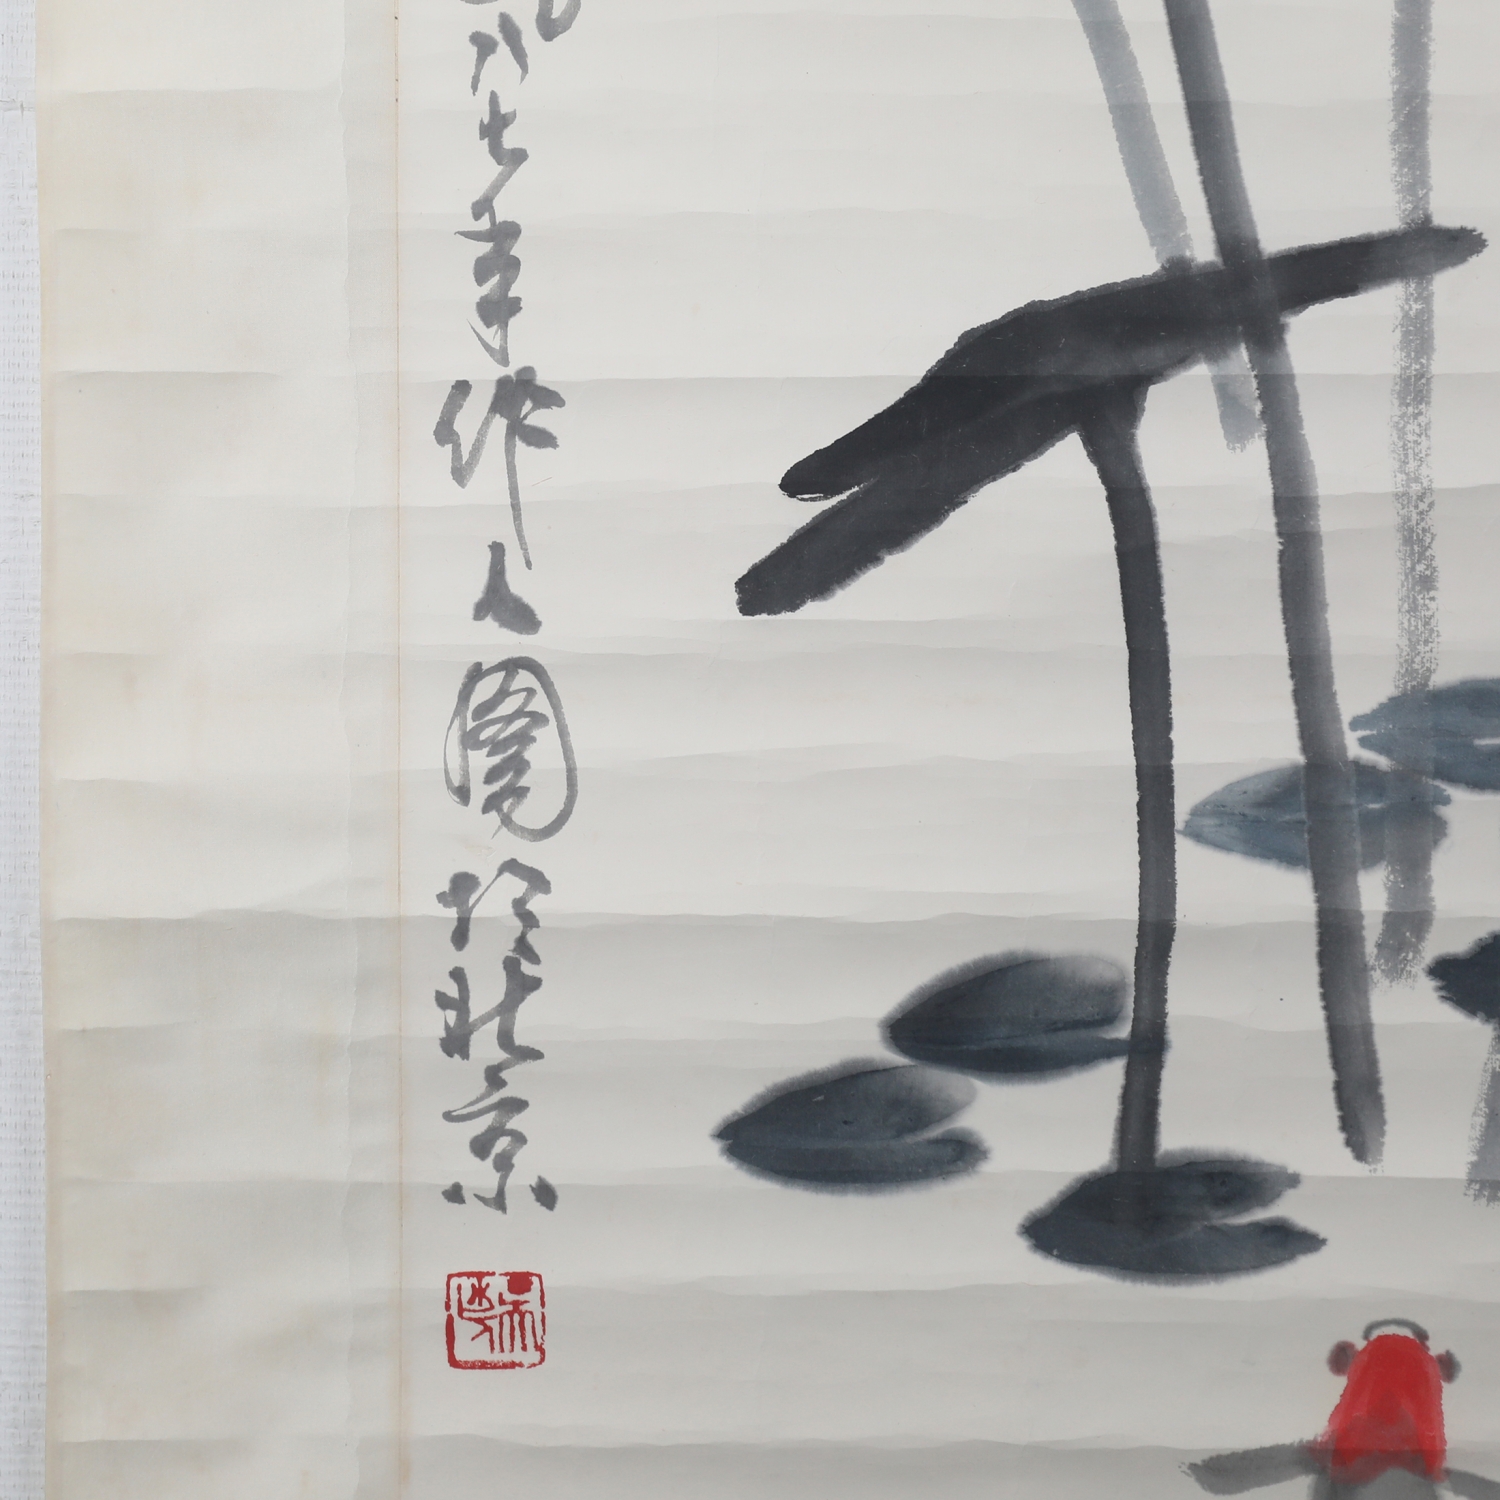 八七年作人圖於北京